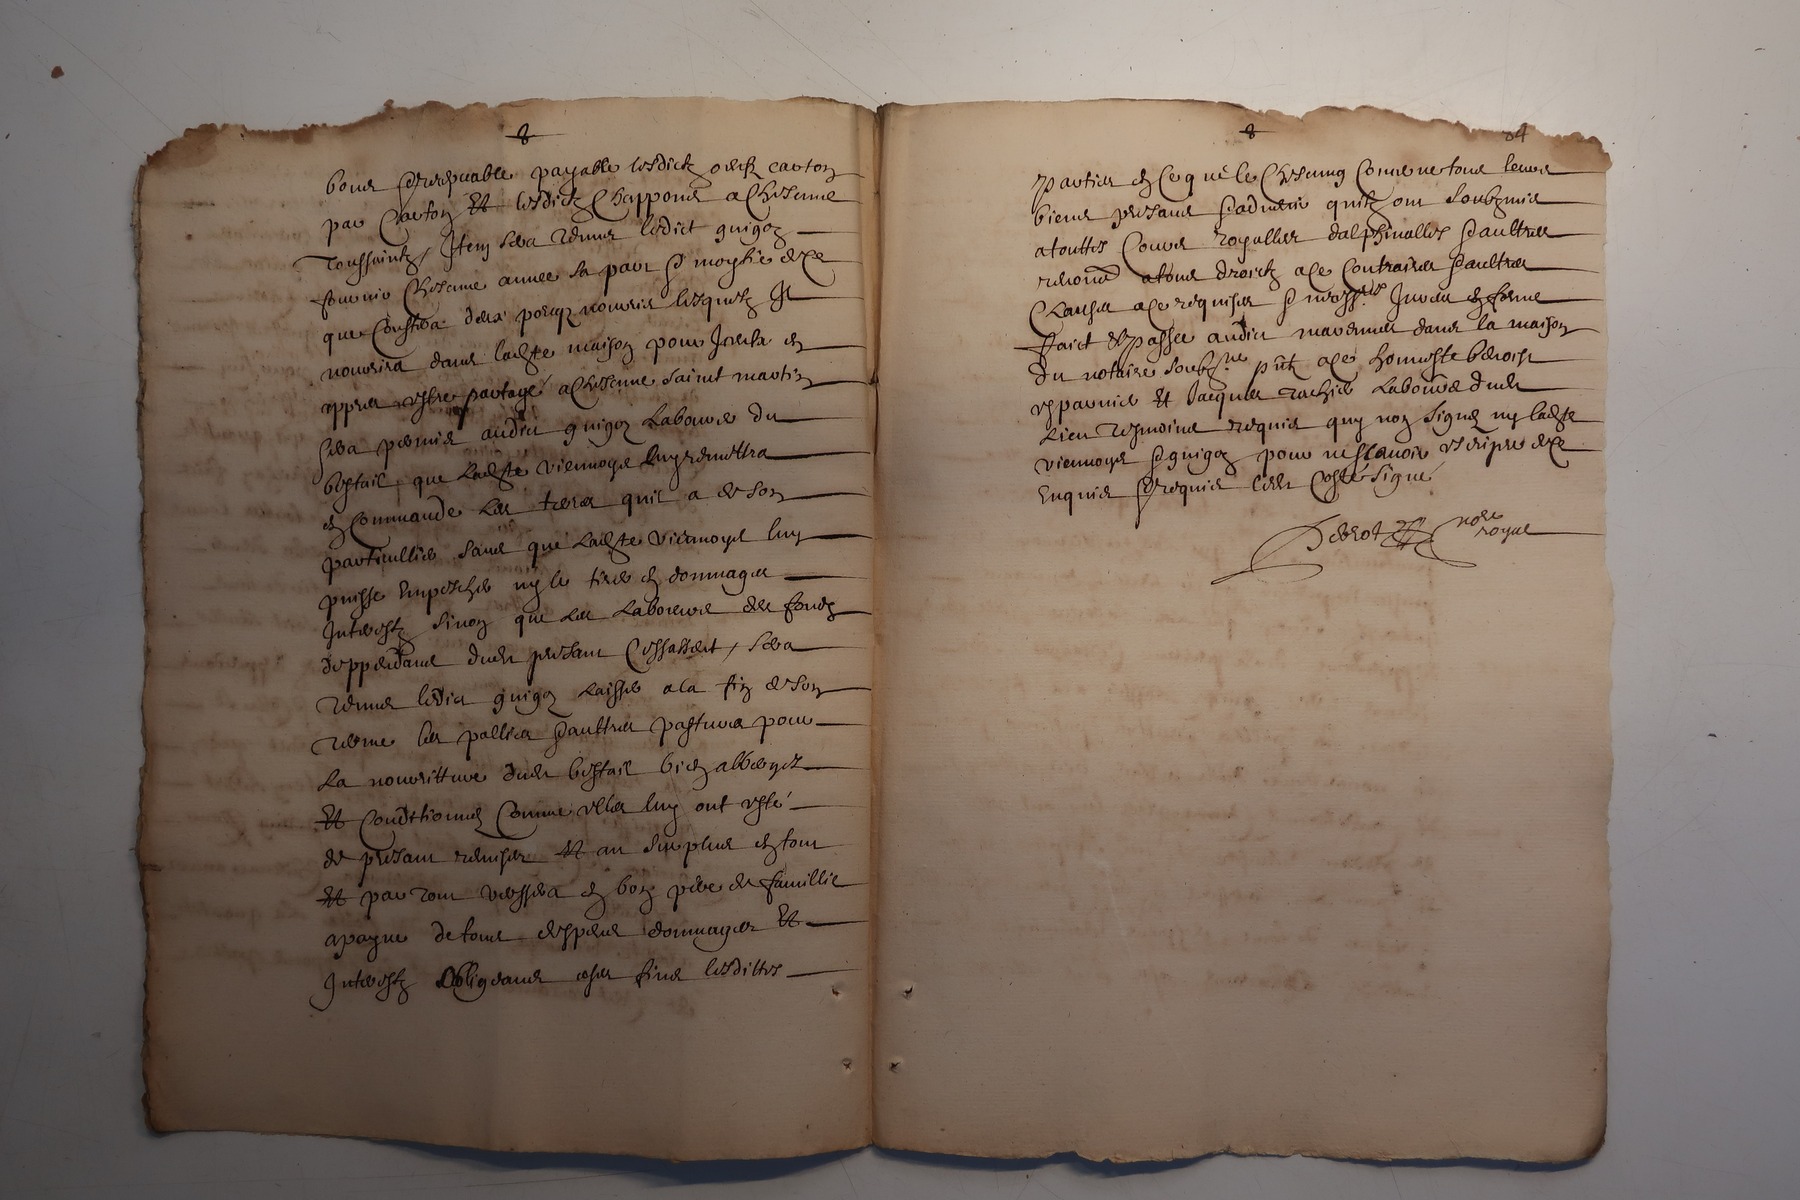 8
bons & recepvable payable lesdictz oeufz carton
par carton Et lesdictz chappons a chescune
Toussainctz / Item sera tenus ledict guigoz
fournir chescune annee sa part & moytie de ce
que coustera deux porcqz nourris lesquelz Il
nourrira dans ladte maison pour Iceulx en
appres estre partagé a chescune saint martin
sera permis audict guigoz labourer du
bestail que ladte viennoyse luy remettra
en commande les terres quil a de son
particullier sans que ladte viennoyse luy
puisse empescher ny le tirer en dommages
Interestz sinon que les laboreurs des fondz
deppendans dudt presant cessassent / sera
tenus ledict guigoz laisser a la fin de son
terme les pallies & aultres pastures pour
La nourritture dudt bestail bien abberges
Et conditionnes comme elles luy ont esté
de presant remises Et au surplus en tout
Et par tout usessera en bon pere de famillie
a payne de tous despens dommages Et
Interestz Obligeans a ses fins lesdittes
8
84
Parties en ce que le chescung concerne tous leurs
biens presans & advenir quilz ont soubzmis
a touttes cours royalles dalphinalles & aultres
renonçt a tous droictz a ce contraires & aultres
Clauses a ce requises & necessres Jurees en forme
Faict & passee audict marennes dans la maison
du notaire soubzne pnt a ce honneste benoist
esparnier Et Jacques rachier laboure dudt
Lieu tesmoins requis quy non signes ny ladte
viennoyse & guigoz pour ne scavoir escripre de ce
enquis & requis ledt costé signé
Perrot nore royal